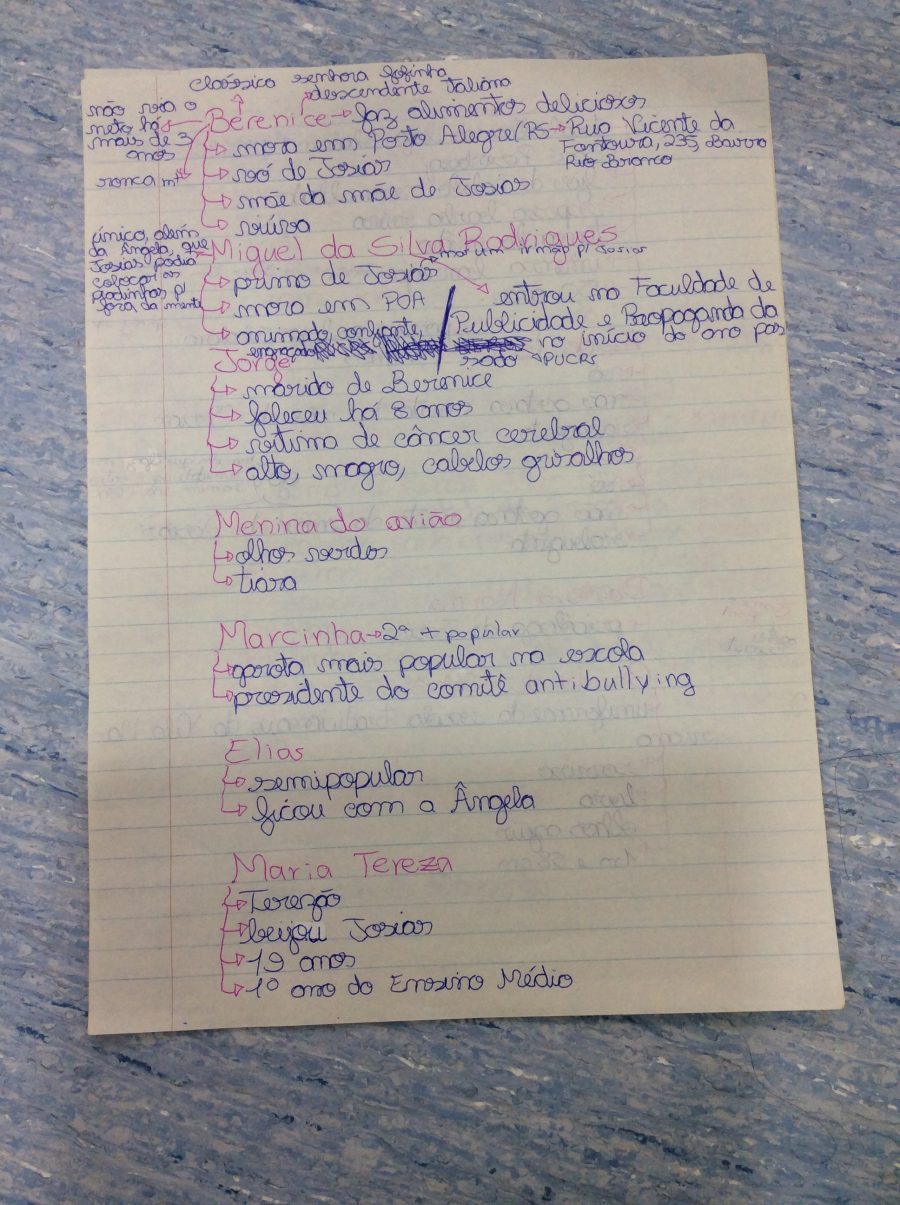 Clássico senhora fofinha
descendente Italiana
não via o
neto há
mais de 3
anos
ronca mto
Berenice → faz alimentos deliciosos
mora em Porto Alegre/RS → Rua Vicente da
Fontoura, 235, Bairro
Rio Branco
vó de Josias
mãe da mãe de Josias
viúva
único, além
da Ângela, que
Josias podia
colocar as
modinhas p/
fora da mente
Miguel da Silva Rodrigues
→ mor um irmão p/ Josias
primo de Josias
mora em POA
animado, confiante,
engraçado
entrou na Faculdade de
Publicidade e Propaganda da
no início do ano pas
sado → PUCRS
Jorge
marido de Berenice
faleceu há 8 anos
vítima de câncer cerebral
alto, magro, cabelos grisalhos
Menina do avião
olhos verdes
tiara
Marcinha → 2ª + popular
garota mais popular na escola
presidente do comitê antibullying
Elias
semipopular
ficou com a Ângela
Maria Tereza
Terezão
beijou Josias
19 anos
1º ano do Ensino Médio